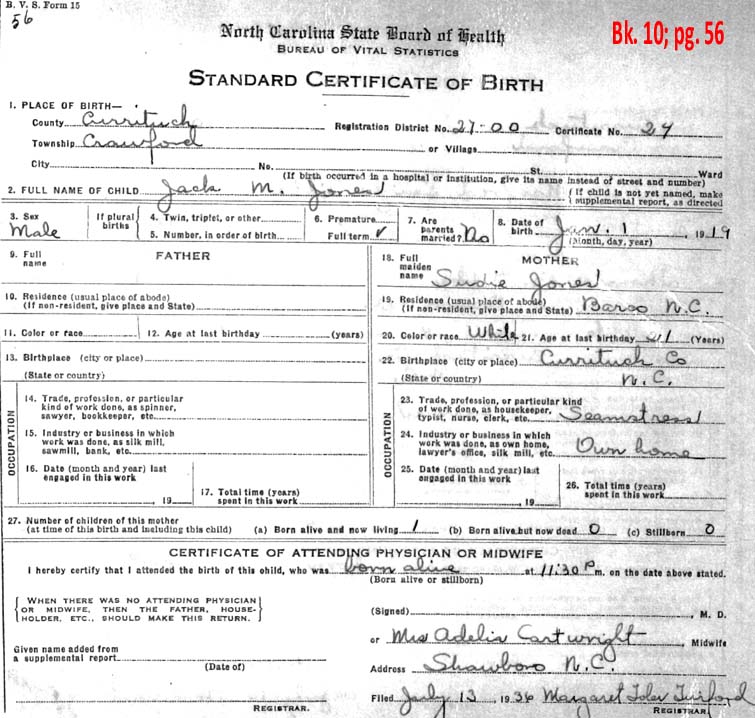 B. V. S. Form 15
56
North Carolina State Board of Health
BUREAU OF VITAL STATISTICS
Bk. 10; pg. 56
STANDARD CERTIFICATE OF BIRTH
1. PLACE OF BIRTH—
County Currituck Registration District No. 27-00 Certificate No. 24
Township Crawford or Village
City No. St. Ward
(If birth occurred in a hospital or institution, give its name instead of street and number)
2. FULL NAME OF CHILD Jack M. Jones { If child is not yet named, make supplemental report, as directed
3. Sex Male If plural births 4. Twin, triplet, or other 5. Number, in order of birth 6. Premature Full term ✓ 7. Are parents married? No 8. Date of birth Jan. 1 1919
(Month, day, year)
FATHER
9. Full name
10. Residence (usual place of abode)
(If non-resident, give place and State)
11. Color or race 12. Age at last birthday (years)
13. Birthplace (city or place)
(State or country)
OCCUPATION
14. Trade, profession, or particular
kind of work done, as spinner,
sawyer, bookkeeper, etc.
15. Industry or business in which
work was done, as silk mill,
sawmill, bank, etc.
16. Date (month and year) last
engaged in this work
, 19
17. Total time (years)
spent in this work
MOTHER
18. Full maiden name Sudie Jones
19. Residence (usual place of abode)
(If non-resident, give place and State) Barco N.C.
20. Color or race White 21. Age at last birthday 21 (Years)
22. Birthplace (city or place) Currituck Co
(State or country) N.C.
OCCUPATION
23. Trade, profession, or particular kind
of work done, as housekeeper,
typist, nurse, clerk, etc. Seamstress
24. Industry or business in which
work was done, as own home,
lawyer's office, silk mill, etc. Own home
25. Date (month and year) last
engaged in this work
, 19
26. Total time (years)
spent in this work
27. Number of children of this mother
(at time of this birth and including this child) (a) Born alive and now living 1 (b) Born alive but now dead 0 (c) Stillborn 0
CERTIFICATE OF ATTENDING PHYSICIAN OR MIDWIFE
I hereby certify that I attended the birth of this child, who was born alive at 11:30 P m. on the date above stated.
(Born alive or stillborn)
{ WHEN THERE WAS NO ATTENDING PHYSICIAN
OR MIDWIFE, THEN THE FATHER, HOUSE-
HOLDER, ETC., SHOULD MAKE THIS RETURN. }
(Signed) , M. D.
or Mrs Adelia Cartwright , Midwife
Given name added from
a supplemental report
(Date of)
Address Shawboro N.C.
Filed July 13, 1936 Margaret
REGISTRAR. REGISTRAR.